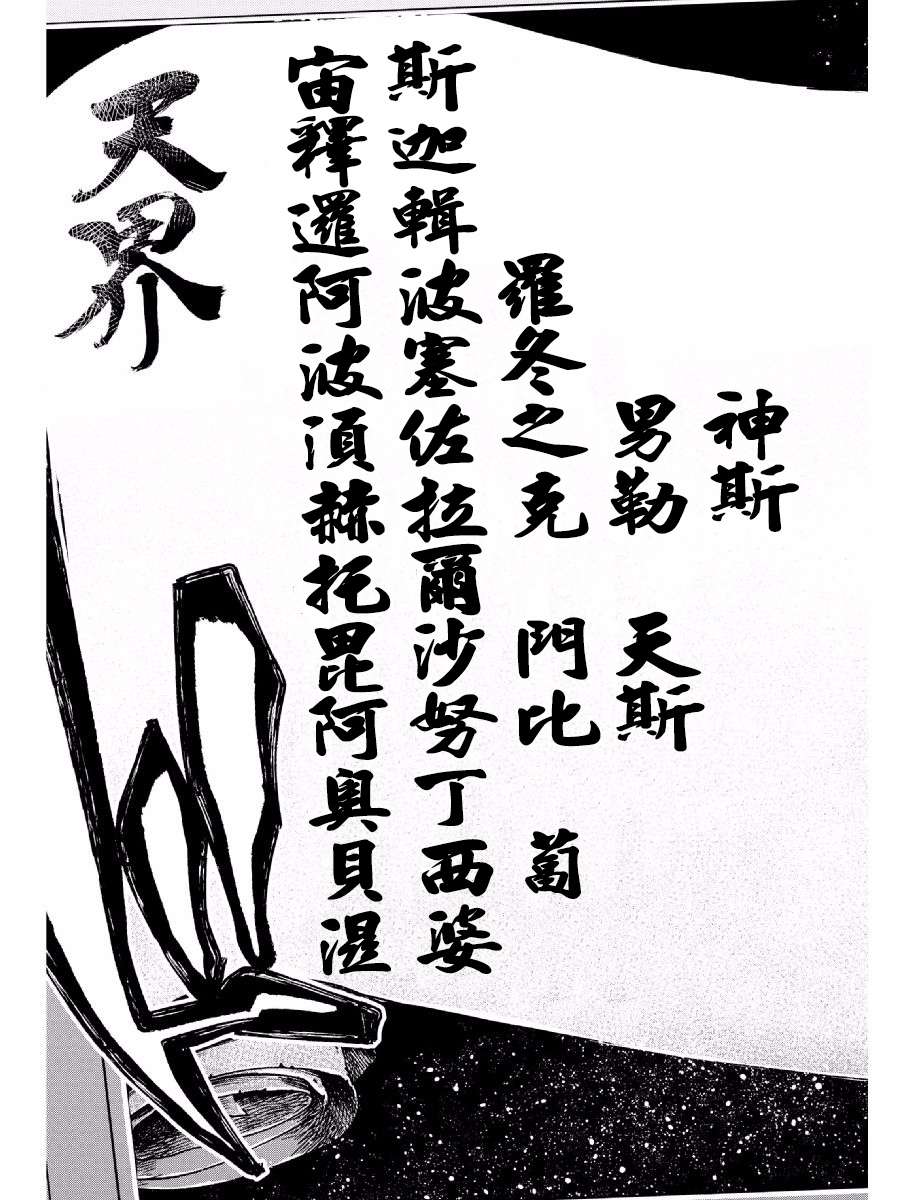 神斯
男勒 天斯
羅冬之克 門比 蔔
斯迦輯波塞佐拉爾沙努丁西婆
宙釋邏阿波須赫托毘阿奧貝湿
天界